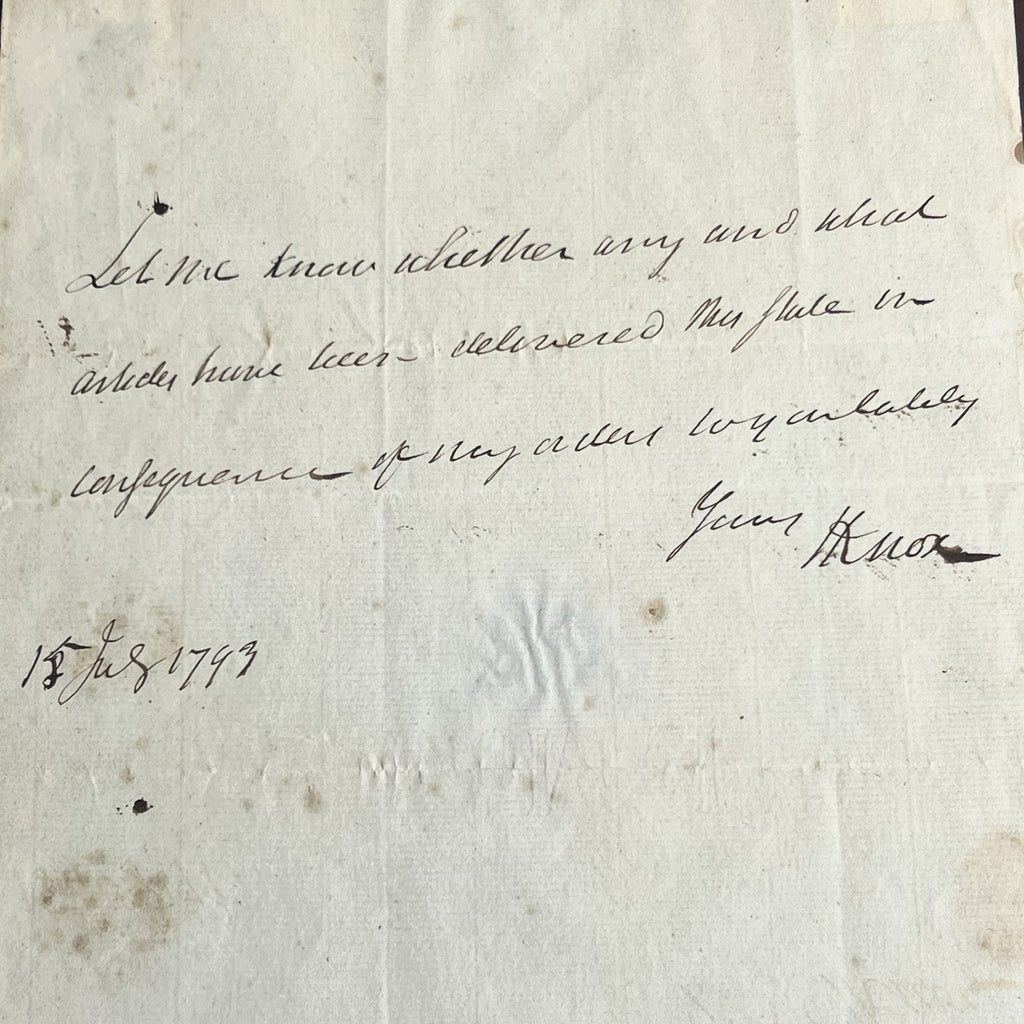 Let me know whether any and what
articles have been delivered this State in
consequence of my orders
Yours HKnox
15 July 1793